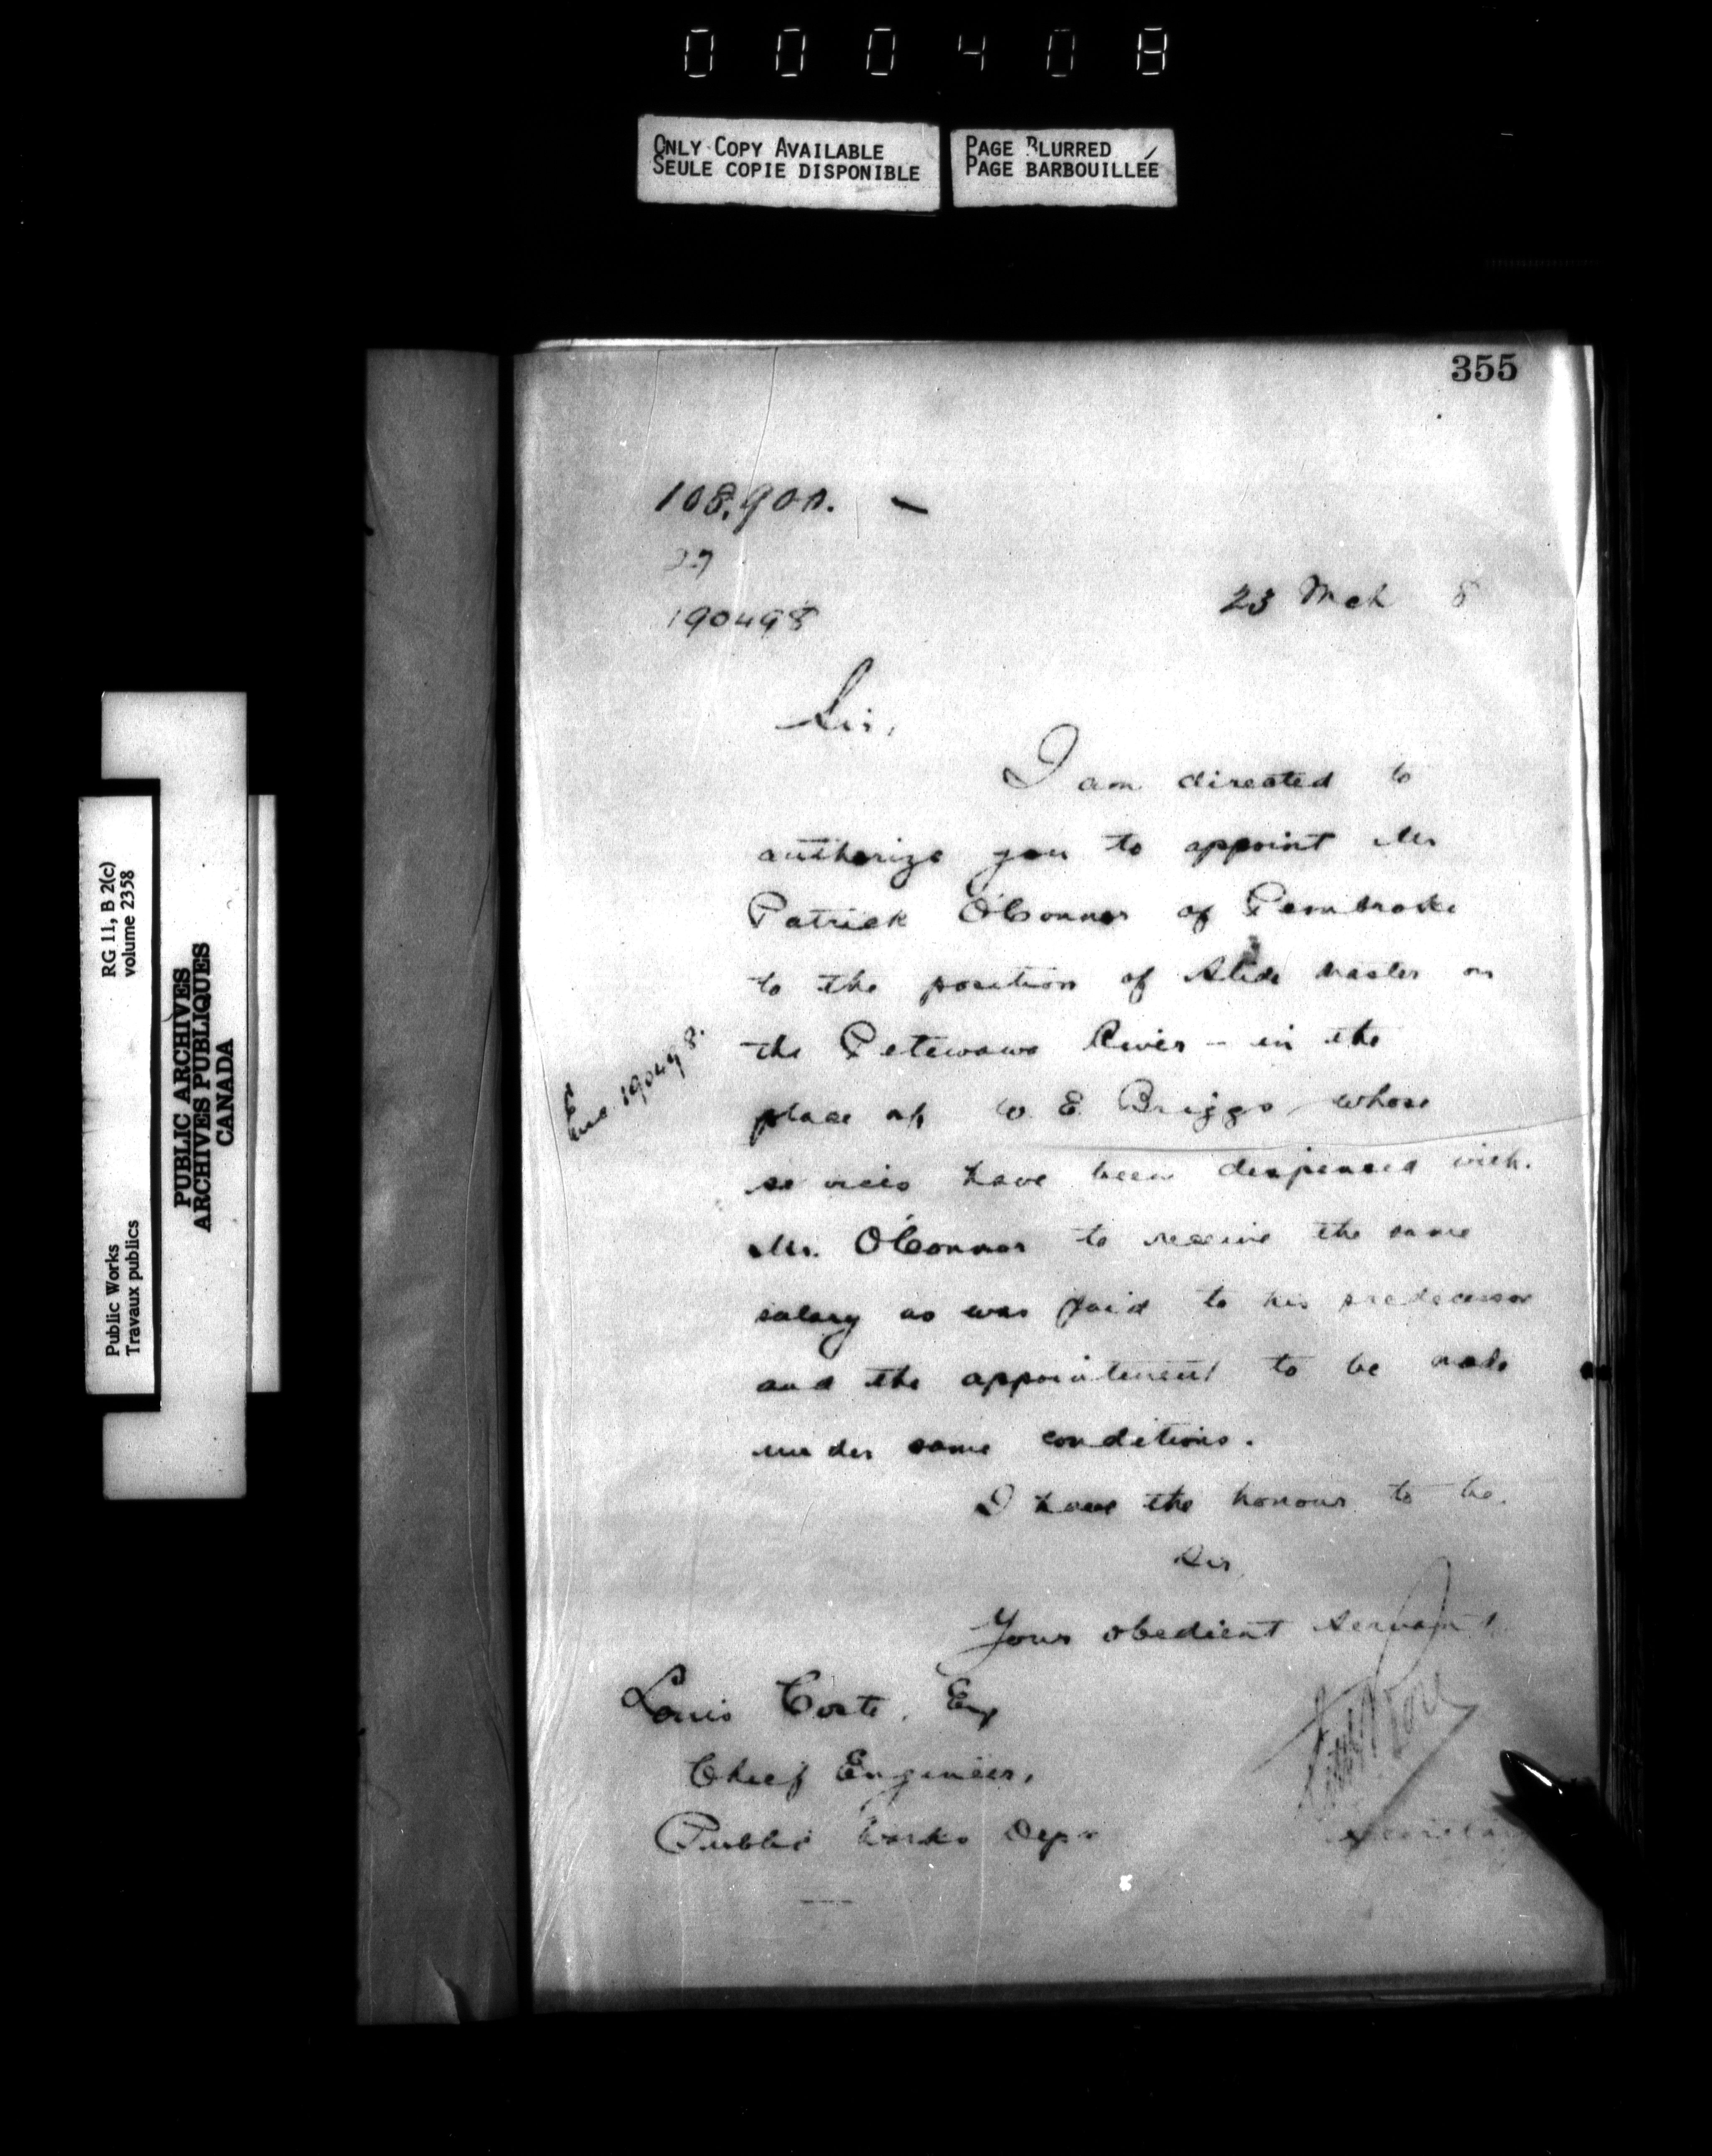 000408
ONLY COPY AVAILABLE
SEULE COPIE DISPONIBLE
PAGE BLURRED
PAGE BARBOUILLÉE
355
108,900. —
27
190498
23 Mch 8
Sir,
I am directed to
authorize you to appoint Mr
Patrick O'Connor of Pembroke
to the position of Slide Master on
the Petewawa River - in the
place of W. E. Briggs whose
services have been dispensed with.
Mr. O'Connor to receive the same
salary as was paid to his predecessor
and the appointment to be made
under same conditions.
Enc. 190498.
I have the honour to be.
Sir,
Your obedient servant
Louis Coste, Esq
Chief Engineer,
Public Works Dept
Secretary
RG 11, B 2(c)
volume 2358
Public Works
Travaux publics
PUBLIC ARCHIVES
ARCHIVES PUBLIQUES
CANADA